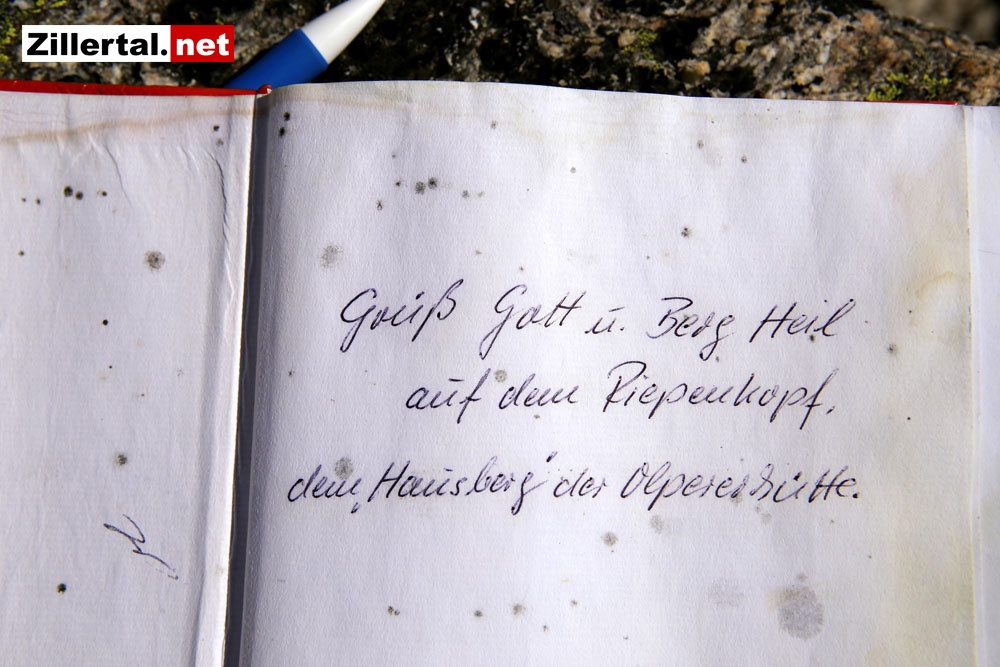 Zillertal.net
Grüß Gott u. Berg Heil
auf dem Riepenkopf,
dem „Hausberg" der Olpererhütte.